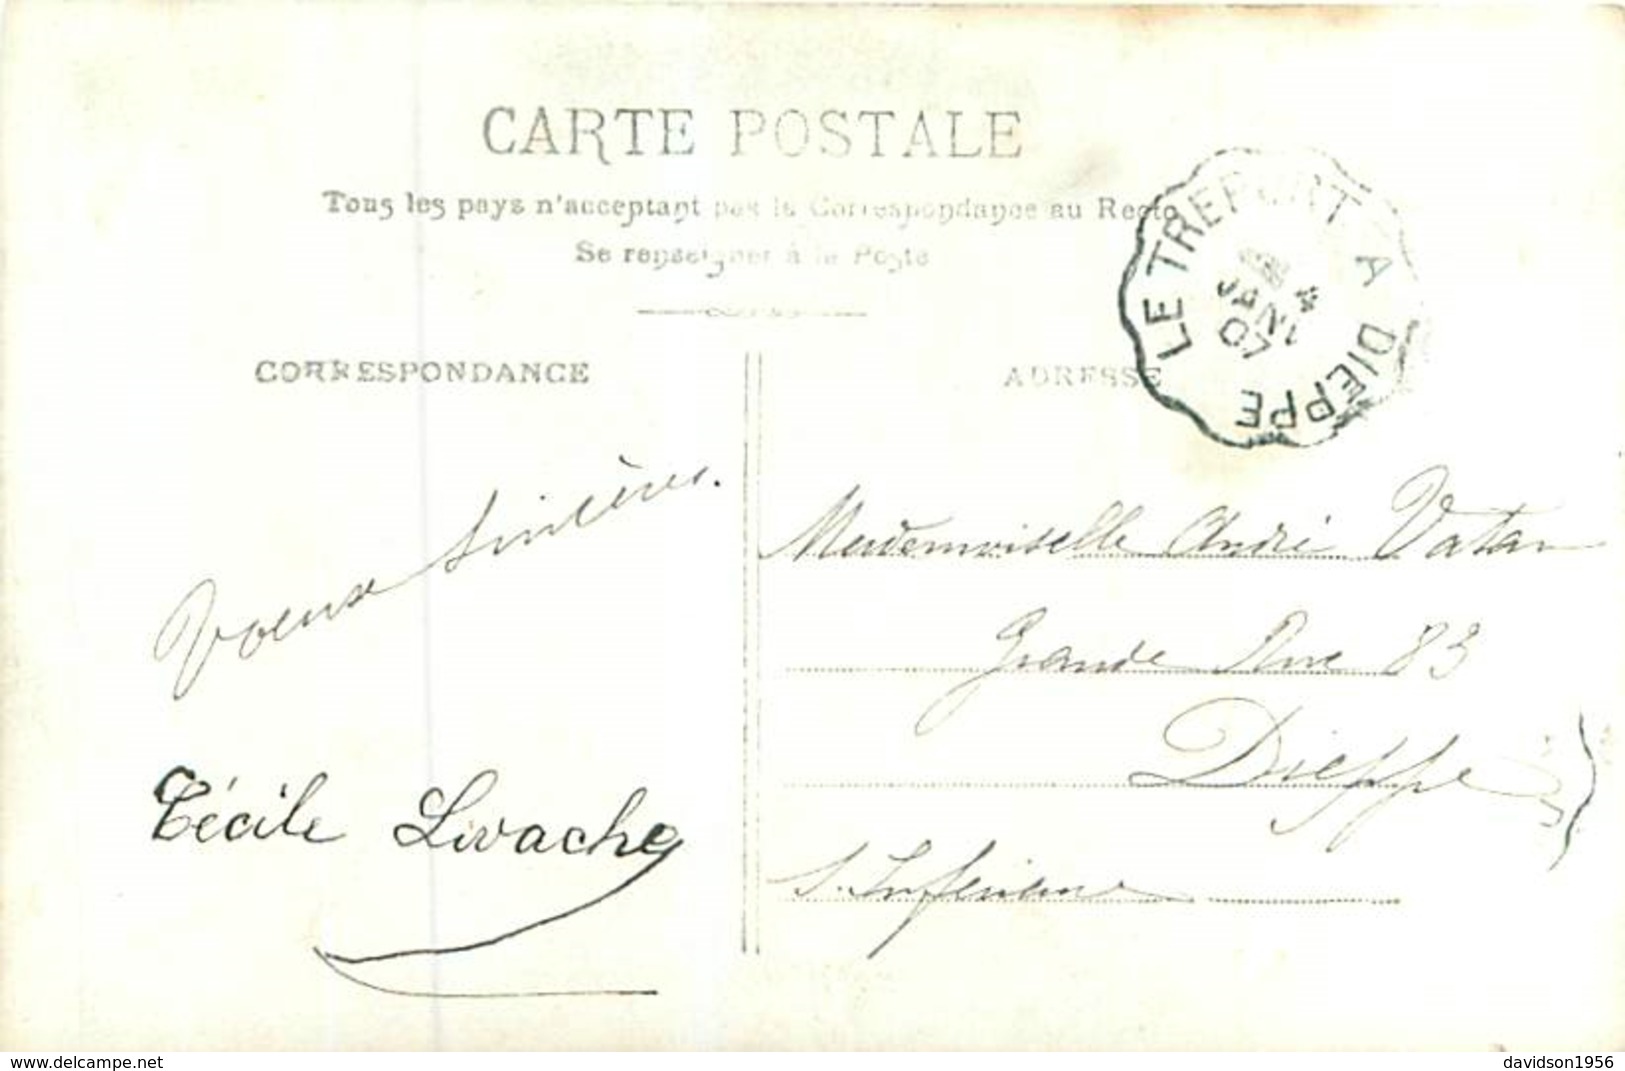 CARTE POSTALE
Tous les pays n'acceptant pas la Correspondance au Recto
Se renseigner à la Poste
CORRESPONDANCE
ADRESSE
LE TREPORT A DIEPPE
4
JANV
07
Voeux Sincères.
Cécile Livache
Mademoiselle André Vatan
Grande Rue 83
Dieppe
S. Inférieure
www.delcampe.net
davidson1956